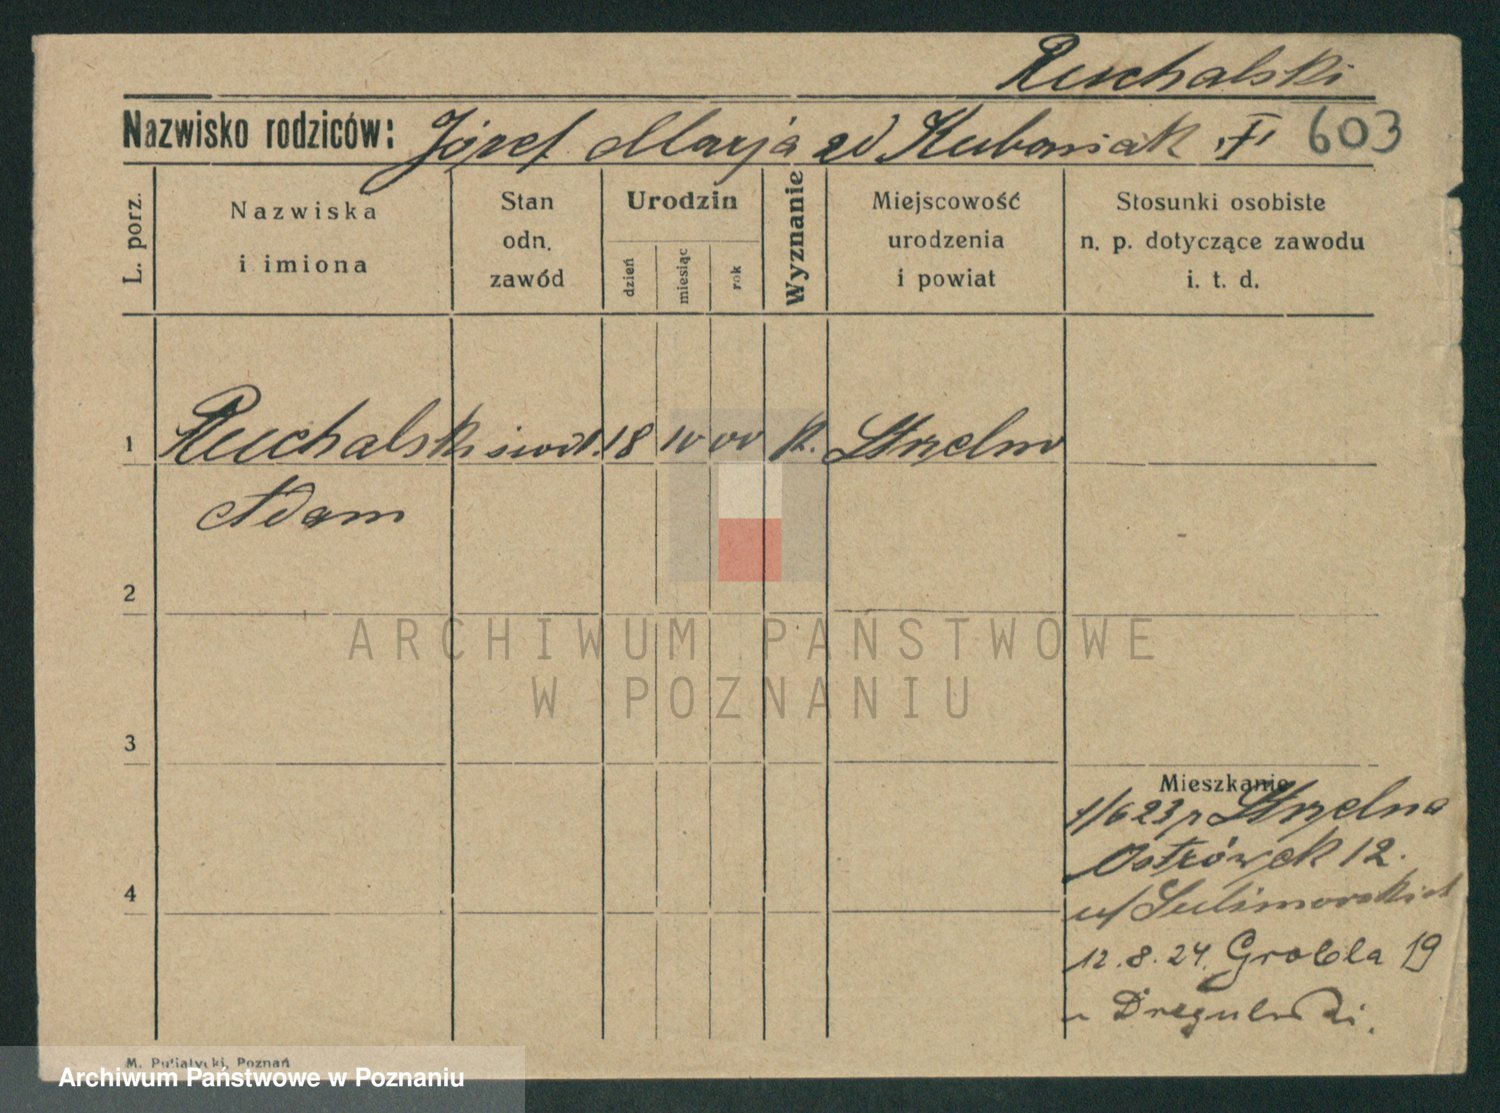 Ruchalski
Nazwisko rodziców: Józef Marja zd Kubasiak I 603
L. porz.
Nazwiska
i imiona
Stan
odn.
zawód
Urodzin
dzień
miesiąc
rok
Wyznanie
Miejscowość
urodzenia
i powiat
Stosunki osobiste
n. p. dotyczące zawodu
i. t. d.
1 Ruchalski 18 10 00 k. Strzelno
Adam
2
3
4
Mieszkanie
1/6 23 z Strzelna
Ostrówek 12.
u/ Sulimorskich
12.8.24. Grobla 19
M. Putiatycki, Poznań
ARCHIWUM PAŃSTWOWE
W POZNANIU
Archiwum Państwowe w Poznaniu